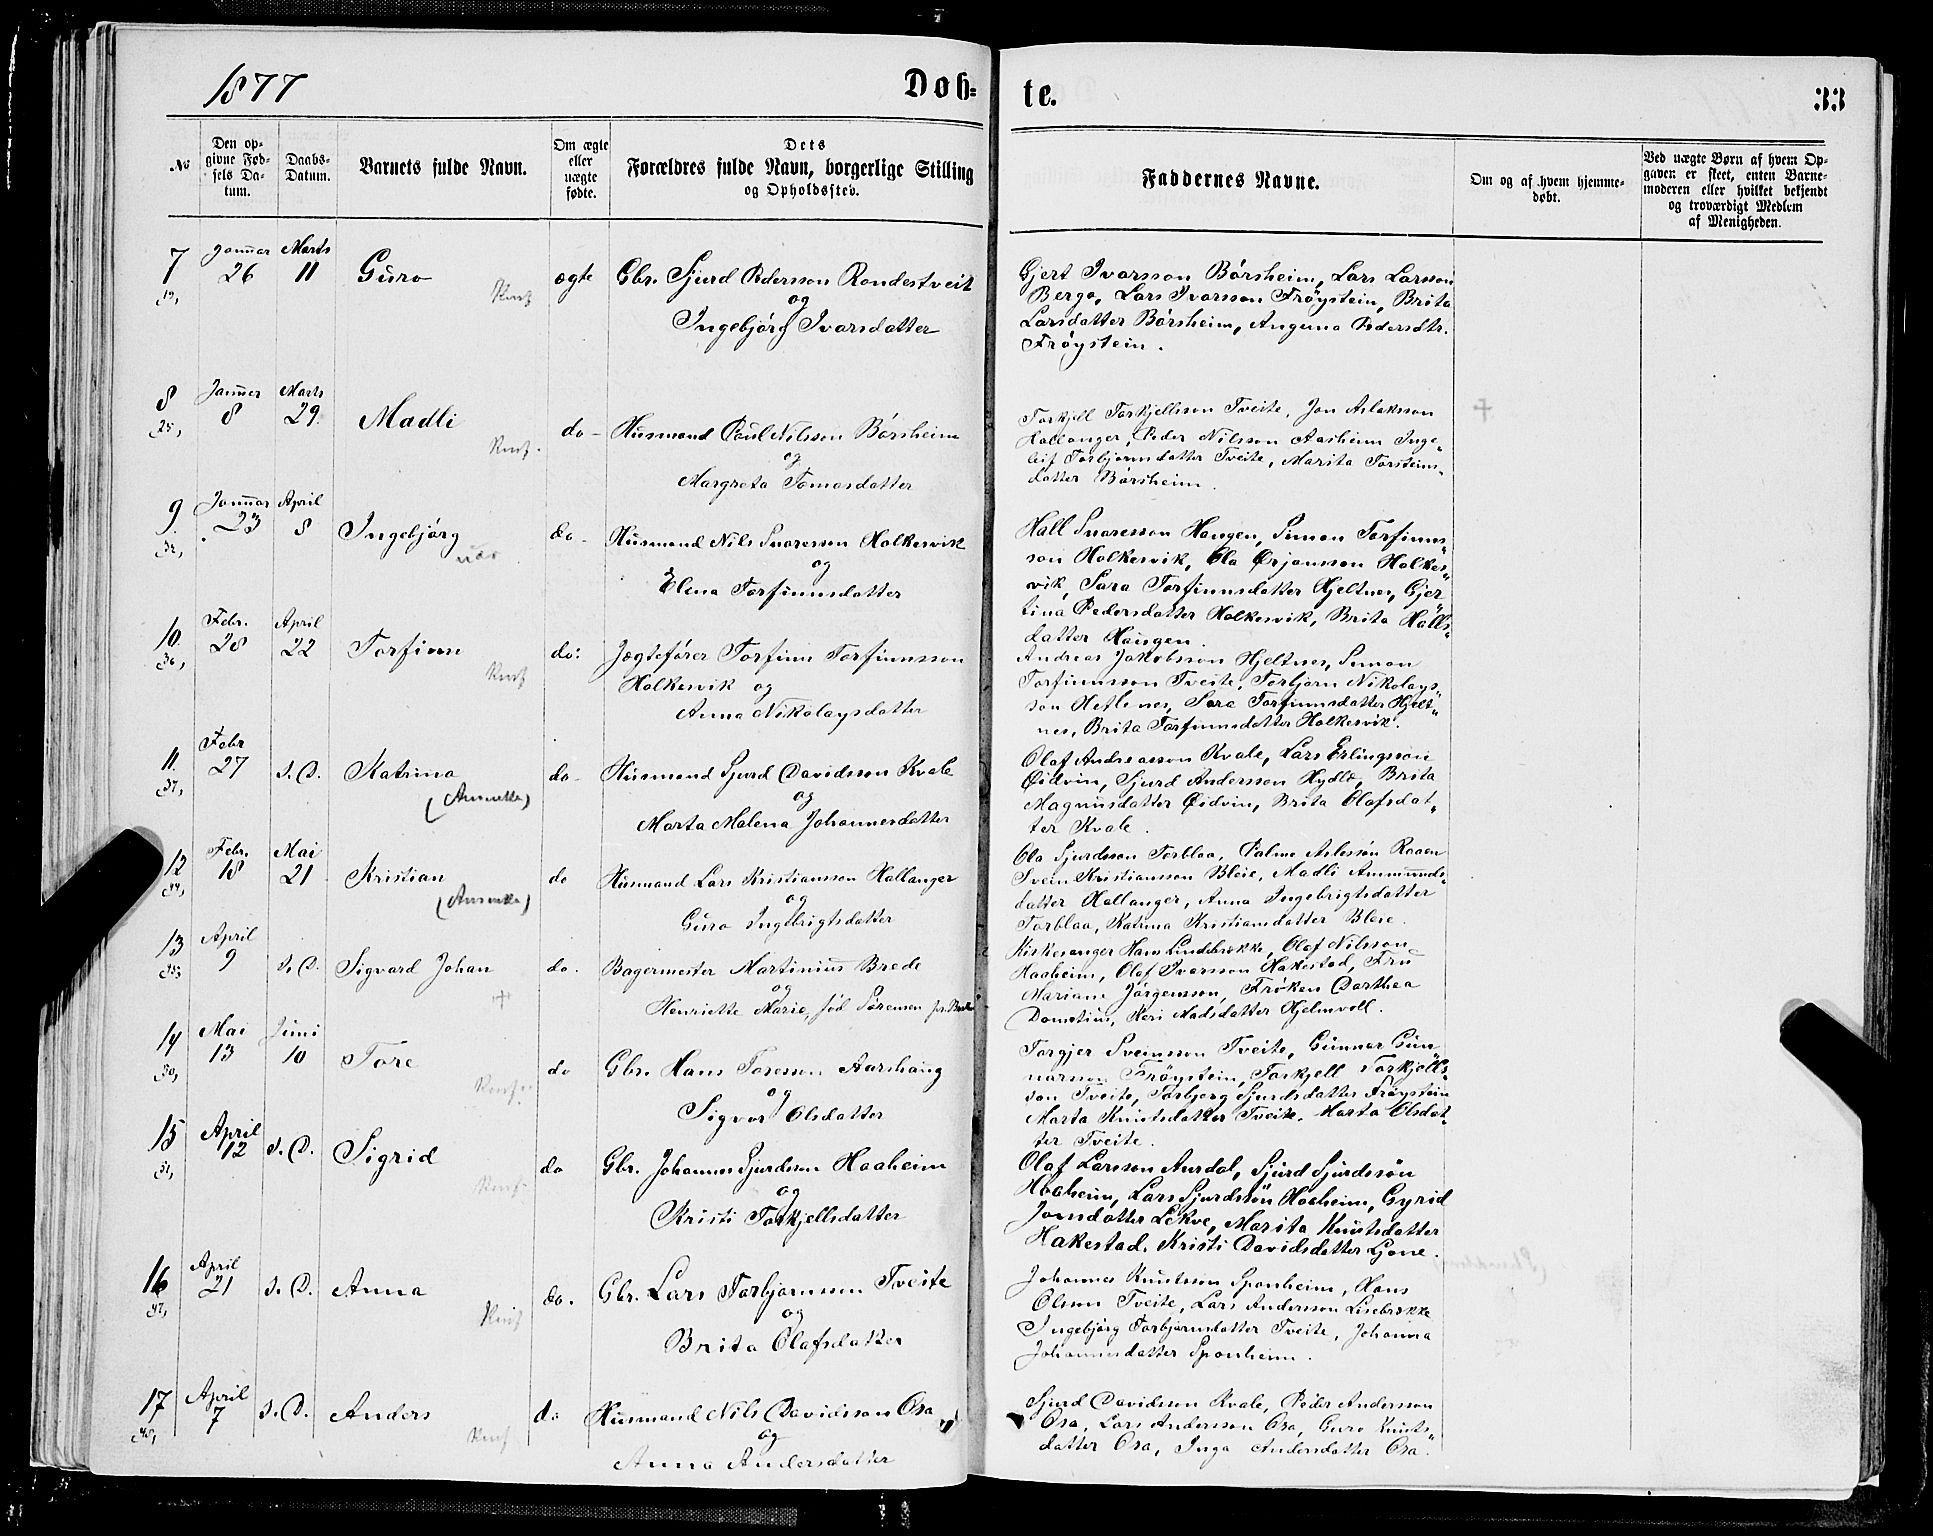 1877 Døb- te. 33
No
Den op-
givne Fød-
sels Da-
tum.
Daabs-
Datum.
Barnets fulde Navn.
Om ægte
eller
uægte
fødte.
Dets
Forældres fulde Navn, borgerlige Stilling
og Opholdssted.
Faddernes Navne.
Om og af hvem hjemme-
døbt.
Ved uægte Børn af hvem Op-
gaven er skeet, enten Barne-
moderen eller hvilket bekjendt
og troværdigt Medlem
af Menigheden.
7 Januar 26 Marts 11 Guro ægte Gbr. Sjurd Pedersson Rondestveit
og
Ingebjörg Ivarsdatter
Gjert Ivarsson Börsheim, Lars Larsson
Berge, Lars Ivarsson Fröystein, Brita
Larsdatter Börsheim, Angunna Pedersdtr.
Fröystein.
8 Januar 8 Marts 29. Madli do- Husmand Poul Nilsson Börsheim
og
Margreta Tomasdatter
Torkjell Torkjellsson Tveite, Jon Aslaksson
Hallanger, Peder Nilsson Aasheim Inge-
leif Torbjørnsdatter Tveite, Marita Torsteins-
datter Börsheim.
9 Januar 23 April 8 Ingebjörg do- Husmand Nils Snaresson Holkesvik
og
Elena Torfinnsdatter
Hall Snaresson Haugen, Simon Torfinns-
son Holkesvik, Ola Ørjansson Holkes-
vik, Sara Torfinnsdatter Hjeltnes, Gjer-
tina Pedersdatter Holkesvik, Brita Halls-
datter Haugen.
10 Febr. 28 April 22 Torfinn do: Jægtefører Torfinn Torfinnsson
Holkesvik og
Anna Nikolaysdatter
Andreas Jakobsson Hjeltnes, Simon
Torfinnsson Tveite, Torbjørn Nikolays-
son Hetlenes, Sara Torfinnsdatter Hjelt-
nes, Brita Torfinnsdatter Holkesvik.
11. Febr 27 s. D. Katrina do- Husmand Sjurd Davidsson Kvale
og
Marta Malena Johannesdatter
Olaf Andreasson Kvale, Lars Erlingsson
Øidvin, Sjurd Andersson Hydle, Brita
Magnusdatter Øidvin, Brita Olafsdat-
ter Kvale.
12 Febr. 18 Mai 21 Kristian do Husmand Lars Kristiansson Hallanger
og
Guro Ingebrigtsdatter
Ola Sjurdsson Torblaa, Palme Aslesson Raaen
Svein Kristiansson Bleie, Madli Ammunds-
datter Hallanger, Anna Ingebrigtsdatter
Torblaa, Katrina Kristiansdatter Bleie.
13 April 9 s. D. Sigvard Johan do. Bagermester Martinius Brede
og
Henriette Marie, fød Sørensen
Kirkesanger Hans Lindebrekke, Olaf Nilsson
Haaheim, Olaf Ivarsson Hakestad, Fru
Mariane Jörgensson, Fröken Dorthea
Dometius, Mari Madsdatter Hjelmvoll.
14 Mai 13 Juni 10 Tore do Gbr. Hans Toresson Aarshaug
og
Sigvor Olsdatter
Torgjer Sveinsson Tveite, Gunnar Gun-
narsson Fröystein, Torkjell Torkjells-
son Tveite, Torbjørg Sjurdsdatter Fröystein
Marta Knutsdatter Tveite. Marta Olsdat-
ter Tveite.
15 April 12 s. D. Sigrid do Gbr. Johannes Sjurdsson Haaheim
og
Kristi Torkjellsdatter
Olaf Larsson Aurdal, Sjurd Sjurdsson
Haaheim, Lars Sjurdsson Haaheim, Gyrid
Jonsdatter Lekve, Marita Knutsdatter
Hakestad. Kristi Davidsdatter Ljone.
16 April 21 s. D. Anna do. Gbr. Lars Torbjørnsson Tveite
og
Brita Olafsdatter
Johannes Knutsson Sponheim, Hans
Olsson Tveite, Lars Andersson Lisebrekke
Ingebjörg Torbjørnsdatter Tveite, Johanna
Johannesdatter Sponheim.
17 April 7 s. D. Anders do Husmand Nils Davidsson Osa
og
Anna Andersdatter
Sjurd Davidsson Kvale, Peder Andersson
Osa, Lars Andersson Osa, Guro Knuts-
datter Osa, Inga Andersdatter Osa.